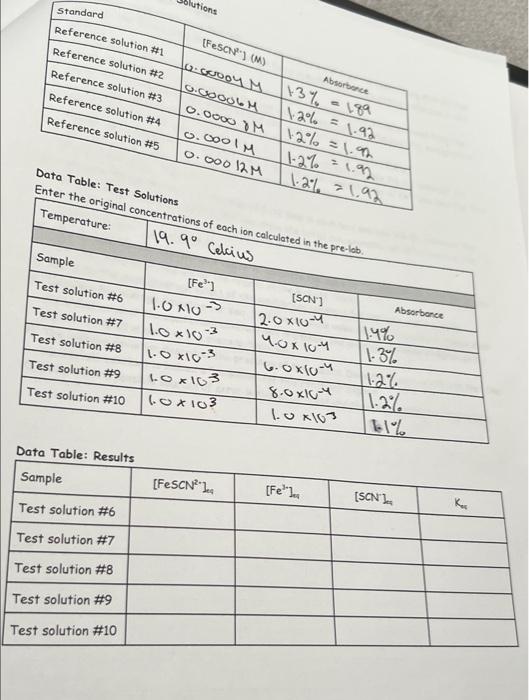 Solutions
Standard [FeSCN²⁺] (M) Absorbance
Reference solution #1 0.00004 M 1.3% = 1.89
Reference solution #2 0.00006 M 1.2% = 1.92
Reference solution #3 0.00008 M 1.2% = 1.92
Reference solution #4 0.0001 M 1.2% = 1.92
Reference solution #5 0.00012 M 1.2% = 1.92
Data Table: Test Solutions
Enter the original concentrations of each ion calculated in the pre-lab.
Temperature: 19.9° Celcius
Sample [Fe³⁺] [SCN⁻] Absorbance
Test solution #6 1.0 x 10⁻³ 2.0 x 10⁻⁴ 1.4%
Test solution #7 1.0 x 10⁻³ 4.0 x 10⁻⁴ 1.3%
Test solution #8 1.0 x 10⁻³ 6.0 x 10⁻⁴ 1.2%
Test solution #9 1.0 x 10⁻³ 8.0 x 10⁻⁴ 1.2%
Test solution #10 1.0 x 10³ 1.0 x 10⁻³ 1.1%
Data Table: Results
Sample [FeSCN²⁺]eq [Fe³⁺]eq [SCN⁻]eq Keq
Test solution #6
Test solution #7
Test solution #8
Test solution #9
Test solution #10